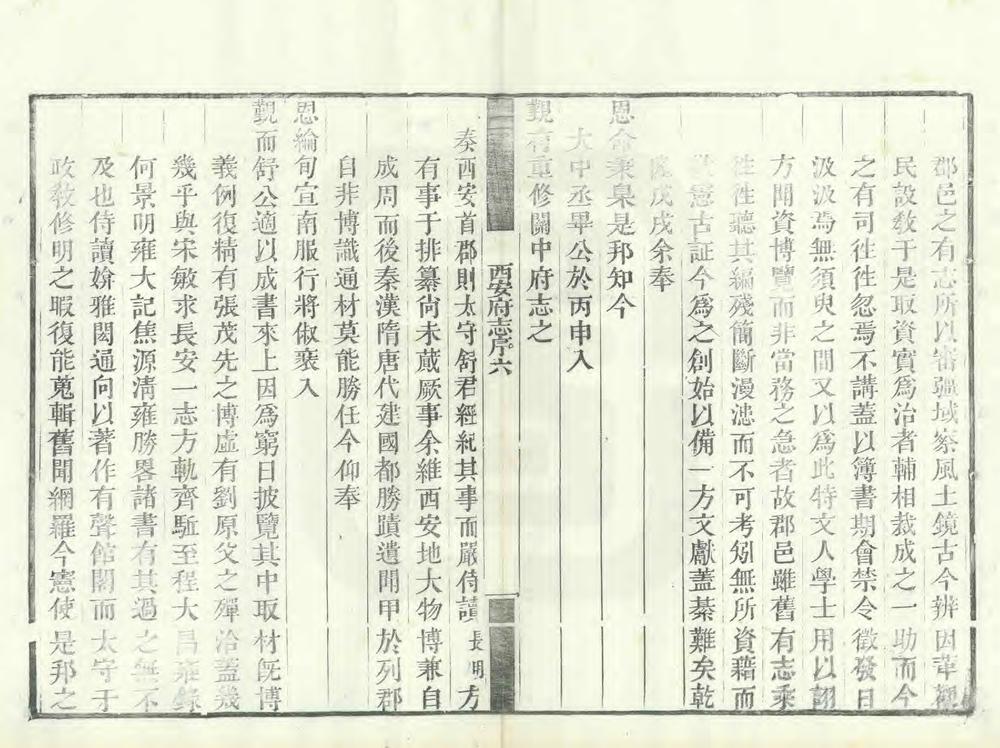 郡邑之有志所以審疆域察風土鏡古今辨因革觀
民設敎于是取資實爲治者輔相裁成之一助而今
之有司徃徃忽焉不講蓋以簿書期會禁令徵發日
汲汲焉無須臾之間又以爲此特文人學士用以詡
方聞資博覽而非當務之急者故郡邑雖舊有志乘
徃徃聽其編殘簡斷漫漶而不可考矧無所資藉而
憲古証今爲之創始以備一方文獻蓋綦難矣乾
隆戊戌余奉
恩命秉臬是邦知今
大中丞畢公於丙申入
覲有重修關中府志之
西安府志序 六
奏西安首郡則太守舒君經紀其事而嚴侍讀長明方
有事于排纂尙未蕆厥事余維西安地大物博兼自
成周而後秦漢隋唐代建國都勝蹟遺聞甲於列郡
自非博識通材莫能勝任今仰奉
恩綸旬宣南服行將俶裝入
覲而舒公適以成書來上因爲窮日披覽其中取材旣博
義例復精有張茂先之博虛有劉原父之殫洽蓋幾
幾乎與宋敏求長安一志方軌齊駈至程大昌雍錄
何景明雍大記焦源淸雍勝畧諸書有其過之無不
及也侍讀媕雅閎通向以著作有聲館閣而太守于
政敎修明之暇復能蒐輯舊聞網羅今憲使是邦之